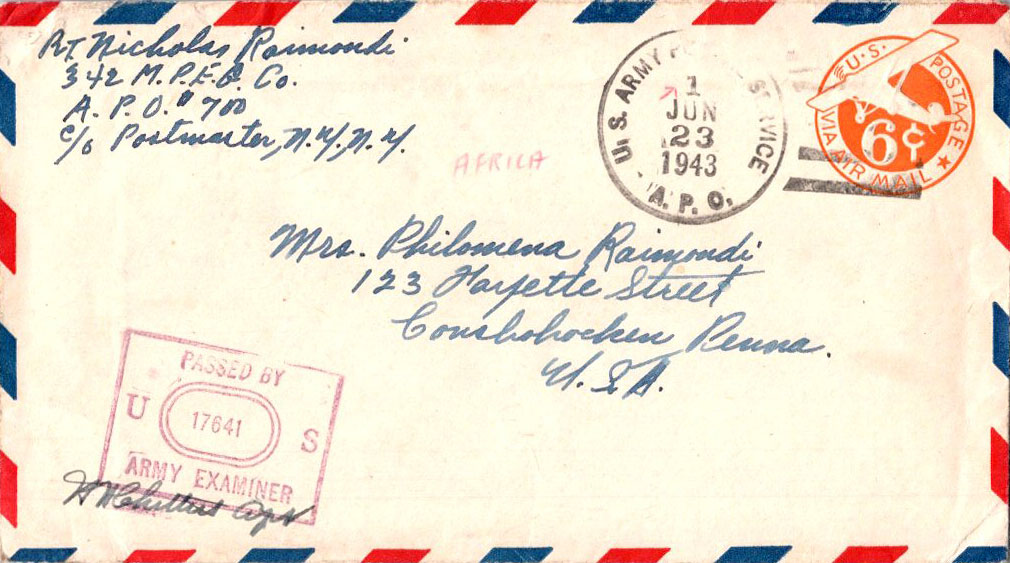 Pvt. Nicholas Raimondi
342 M.P.E.G. Co.
A. P. O. # 700
c/o Postmaster, N.Y., N.Y.
AFRICA
U. S. ARMY POSTAL SERVICE
1
JUN
23
1943
A. P. O.
U.S. POSTAGE
6¢
VIA AIR MAIL
Mrs. Philomena Raimondi
123 Fayette Street
Conshohocken Penna.
U. S. A.
PASSED BY
U 17641 S
ARMY EXAMINER